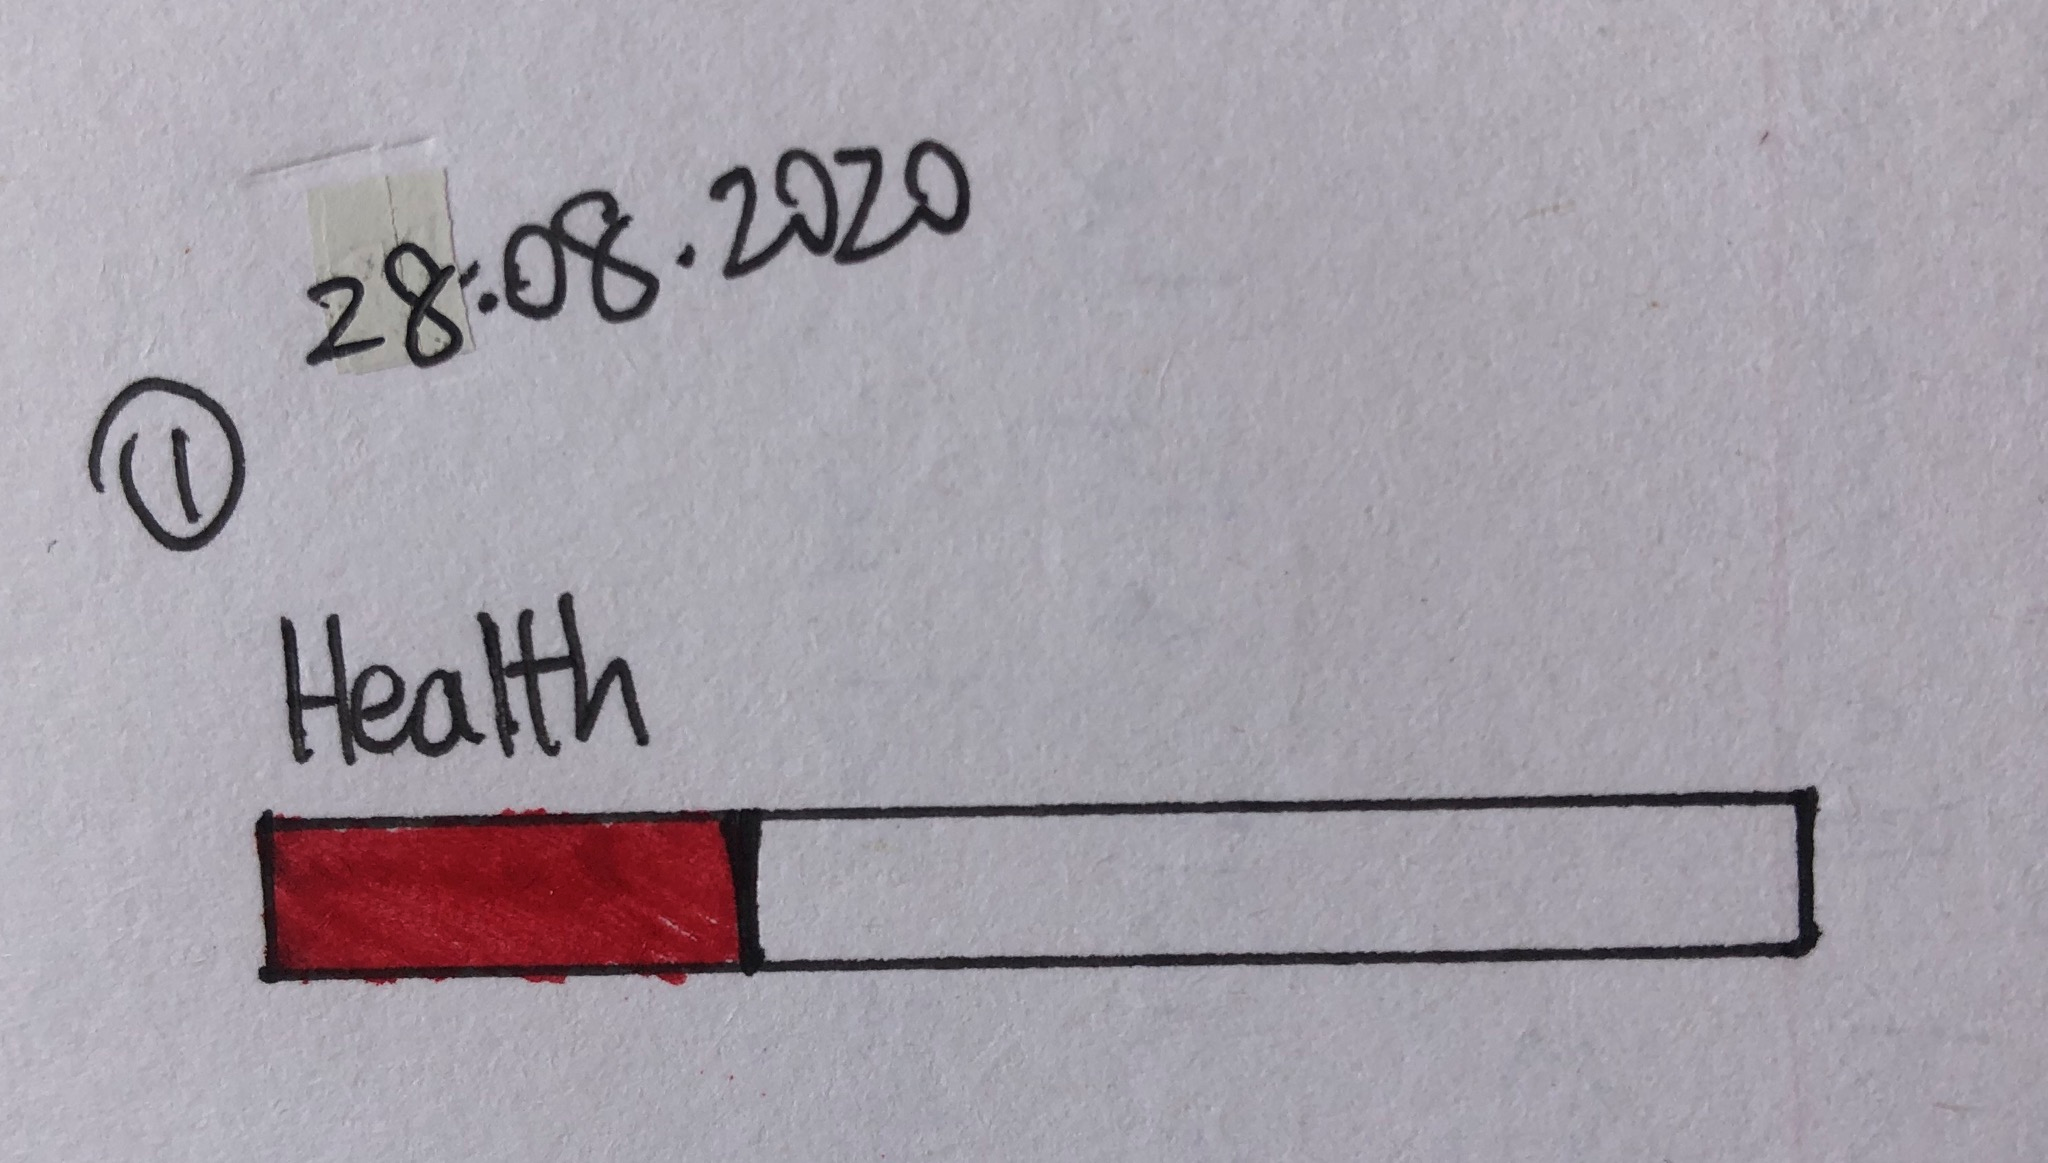 28.08.2020
1
Health